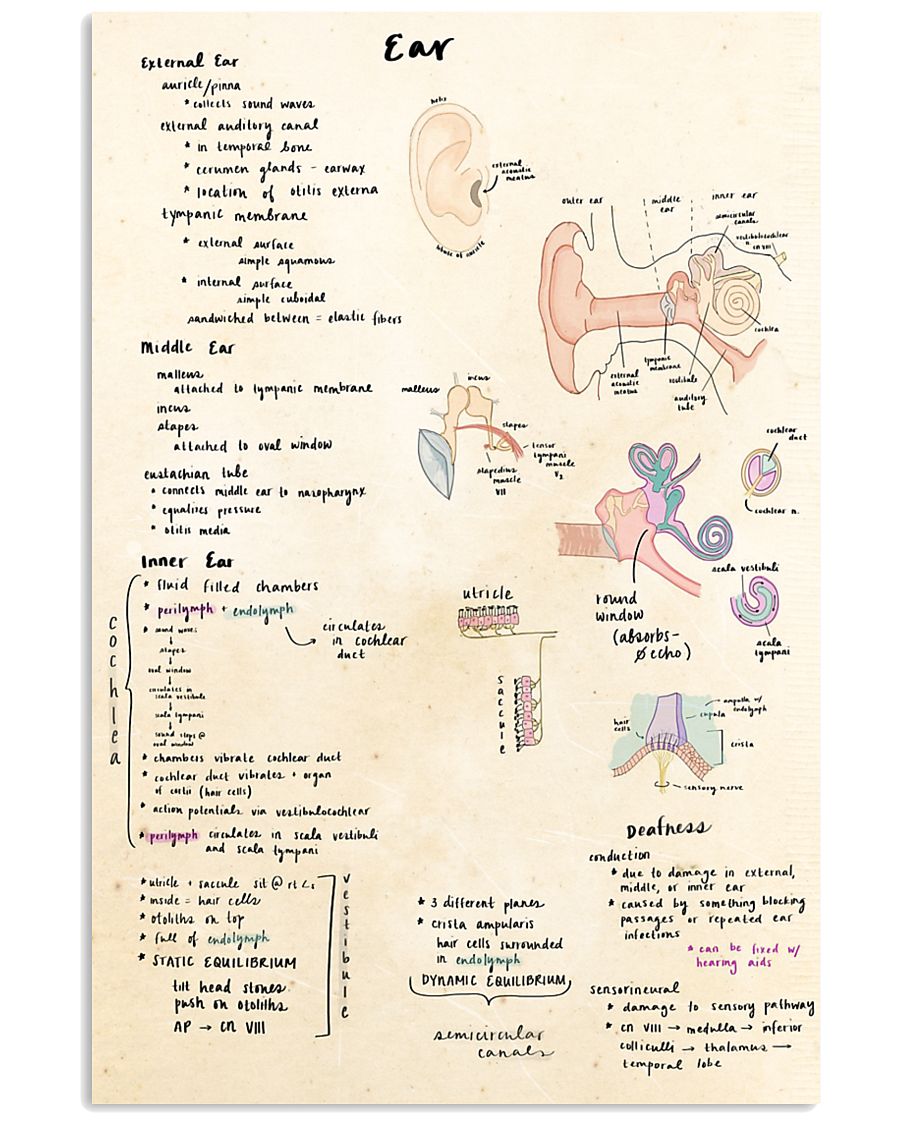 Ear
External Ear
auricle/pinna
* collects sound waves
external auditory canal
* in temporal bone
* cerumen glands - earwax
* location of otitis externa
tympanic membrane
* external surface
simple squamous
* internal surface
simple cuboidal
sandwiched between = elastic fibers
Middle Ear
malleus
attached to tympanic membrane
incus
stapes
attached to oval window
eustachian tube
• connects middle ear to nasopharynx
* equalizes pressure
* otitis media
Inner Ear
cochlea
* fluid filled chambers
* perilymph + endolymph
circulates
in cochlear
duct
* sound waves
↓
stapes
↓
oval window
↓
circulates in
scala vestibule
↓
scala tympani
↓
sound stops @
oval window
* chambers vibrate cochlear duct
* cochlear duct vibrates + organ
of corti (hair cells)
* action potentials via vestibulocochlear
* perilymph circulates in scala vestibuli
and scala tympani
* utricle + saccule sit @ rt ∠s
* inside = hair cells
* otoliths on top
* full of endolymph
* STATIC EQUILIBRIUM
tilt head stones
push on otoliths
AP → CN VIII
vestibule
helix
external
acoustic
meatus
lobule of auricle
outer ear
middle
ear
inner ear
semicircular
canals
vestibulocochlear
n.
CN VIII
cochlea
external
acoustic
meatus
tympanic
membrane
vestibule
auditory
tube
malleus
incus
stapes
tensor
tympani
muscle
V₂
stapedius
muscle
VII
cochlear
duct
cochlear n.
round
window
(absorbs-
Ø echo)
scala vestibuli
scala
tympani
utricle
saccule
ampulla w/
endolymph
cupula
hair
cells
crista
sensory nerve
* 3 different planes
* crista ampularis
hair cells surrounded
in endolymph
DYNAMIC EQUILIBRIUM
semicircular
canals
Deafness
conduction
* due to damage in external,
middle, or inner ear
* caused by something blocking
passages or repeated ear
infections
* can be fixed w/
hearing aids
sensorineural
* damage to sensory pathway
* CN VIII → medulla → inferior
colliculli → thalamus →
temporal lobe